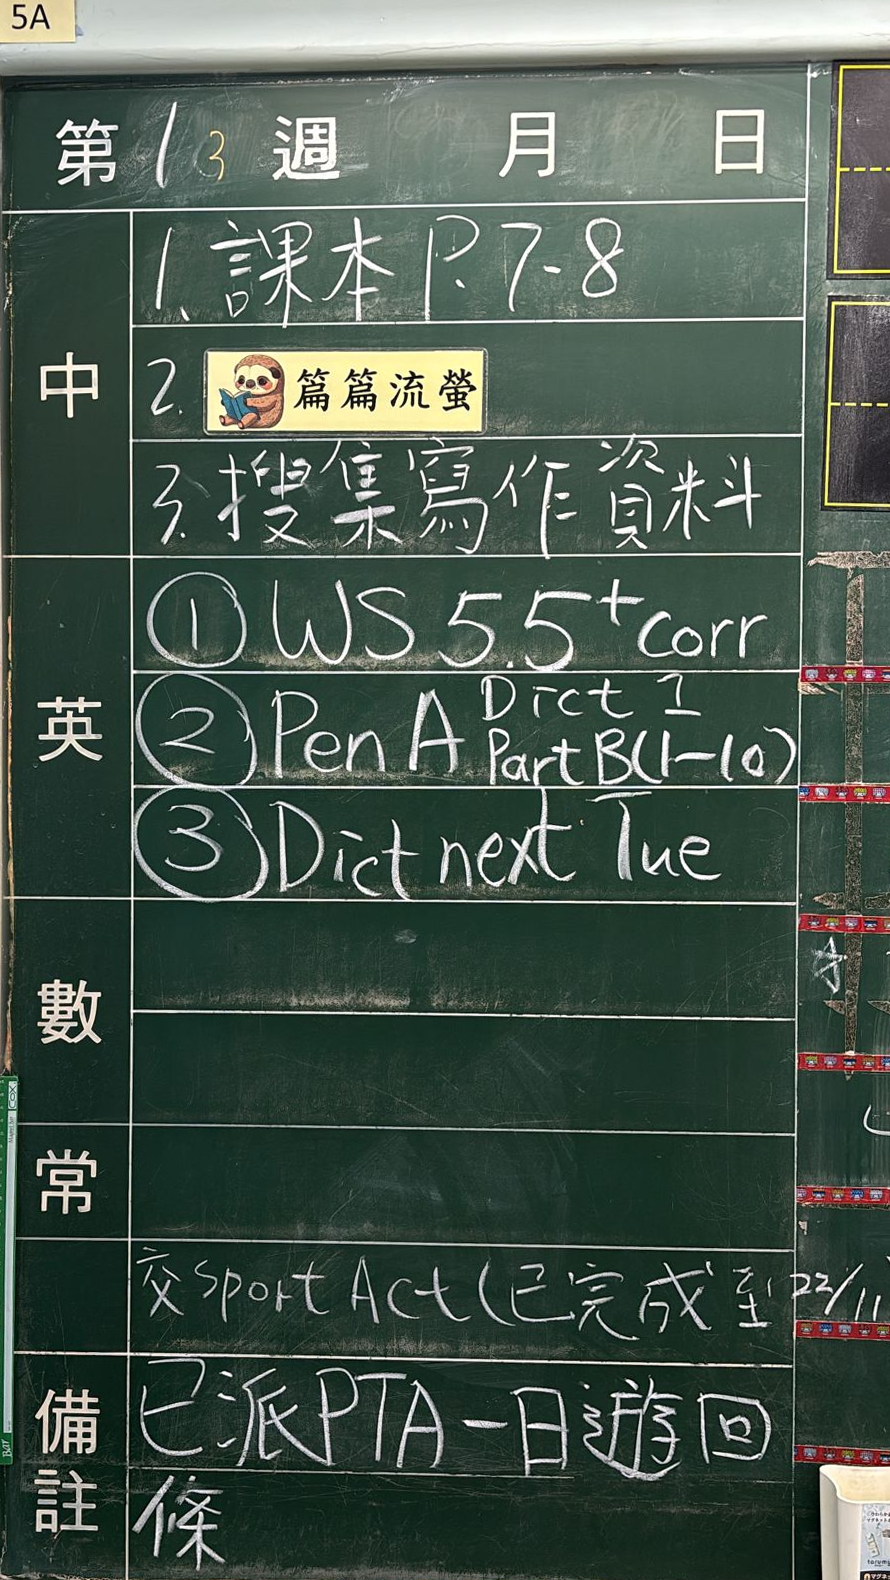 5A
第13週 月 日
中
1. 課本 P.7-8
2. 篇篇流螢
3. 搜集寫作資料
英
① WS 5.5 + corr
② Pen A Dict 1
Part B(1-10)
③ Dict next Tue
數
常
交 Sport Act (已完成至 22/11
備註
已派PTA一日遊回
條